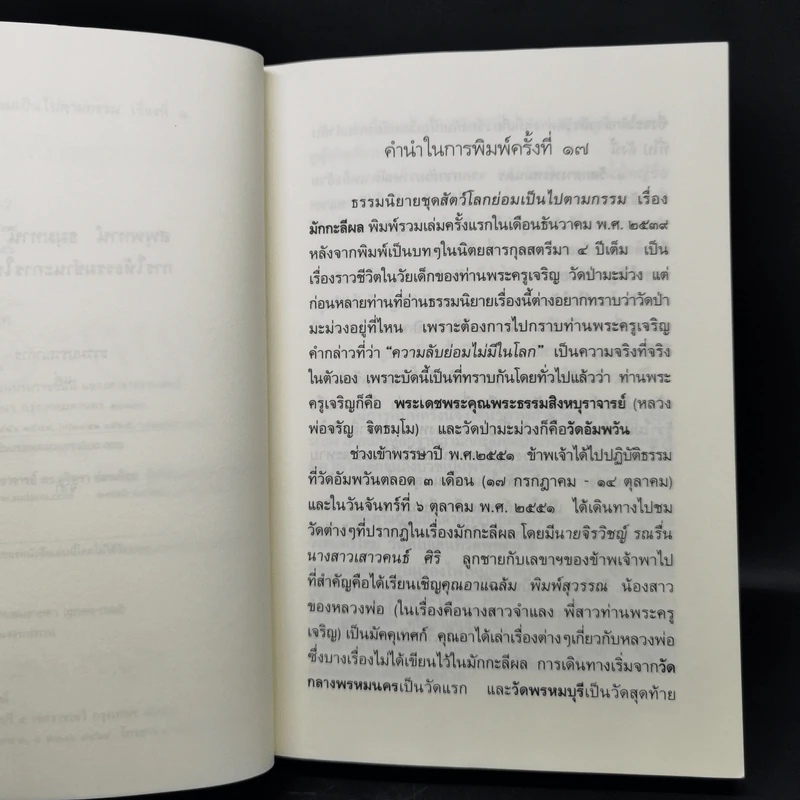 คำนำในการพิมพ์ครั้งที่ ๑๗
ธรรมนิยายชุดสัตว์โลกย่อมเป็นไปตามกรรม เรื่อง
มักกะลีผล พิมพ์รวมเล่มครั้งแรกในเดือนธันวาคม พ.ศ. ๒๕๓๙
หลังจากพิมพ์เป็นบทๆในนิตยสารกุลสตรีมา ๔ ปีเต็ม เป็น
เรื่องราวชีวิตในวัยเด็กของท่านพระครูเจริญ วัดป่ามะม่วง แต่
ก่อนหลายท่านที่อ่านธรรมนิยายเรื่องนี้ต่างอยากทราบว่าวัดป่า
มะม่วงอยู่ที่ไหน เพราะต้องการไปกราบท่านพระครูเจริญ
คำกล่าวที่ว่า "ความลับย่อมไม่มีในโลก" เป็นความจริงที่จริง
ในตัวเอง เพราะบัดนี้เป็นที่ทราบกันโดยทั่วไปแล้วว่า ท่านพระ
ครูเจริญก็คือ พระเดชพระคุณพระธรรมสิงหบุราจารย์ (หลวง
พ่อจรัญ ฐิตธมฺโม) และวัดป่ามะม่วงก็คือวัดอัมพวัน
ช่วงเข้าพรรษาปี พ.ศ.๒๕๕๑ ข้าพเจ้าได้ไปปฏิบัติธรรม
ที่วัดอัมพวันตลอด ๓ เดือน (๑๗ กรกฎาคม - ๑๔ ตุลาคม)
และในวันจันทร์ที่ ๖ ตุลาคม พ.ศ. ๒๕๕๑ ได้เดินทางไปชม
วัดต่างๆที่ปรากฏในเรื่องมักกะลีผล โดยมีนายจิรวิชญ์ รณรื่น
นางสาวเสาวคนธ์ ศิริ ลูกชายกับเลขาฯของข้าพเจ้าพาไป
ที่สำคัญคือได้เรียนเชิญคุณอาแฉล้ม พิมพ์สุวรรณ น้องสาว
ของหลวงพ่อ (ในเรื่องคือนางสาวจำแลง พี่สาวท่านพระครู
เจริญ) เป็นมัคคุเทศก์ คุณอาได้เล่าเรื่องต่างๆเกี่ยวกับหลวงพ่อ
ซึ่งบางเรื่องไม่ได้เขียนไว้ในมักกะลีผล การเดินทางเริ่มจากวัด
กลางพรหมนครเป็นวัดแรก และวัดพรหมบุรีเป็นวัดสุดท้าย